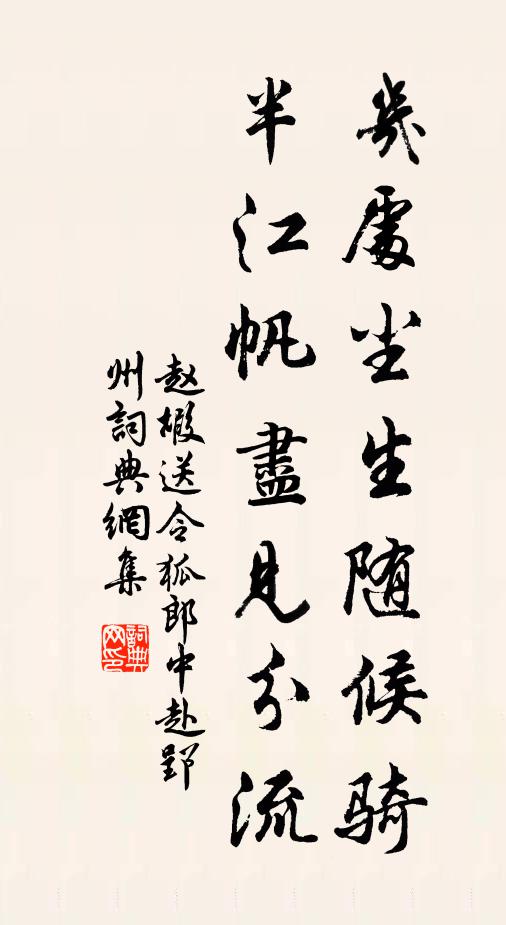 幾處尘生随候骑
半江帆盡見分流
赵嘏送令狐郎中赴郢
州詞典網集
詞典网印